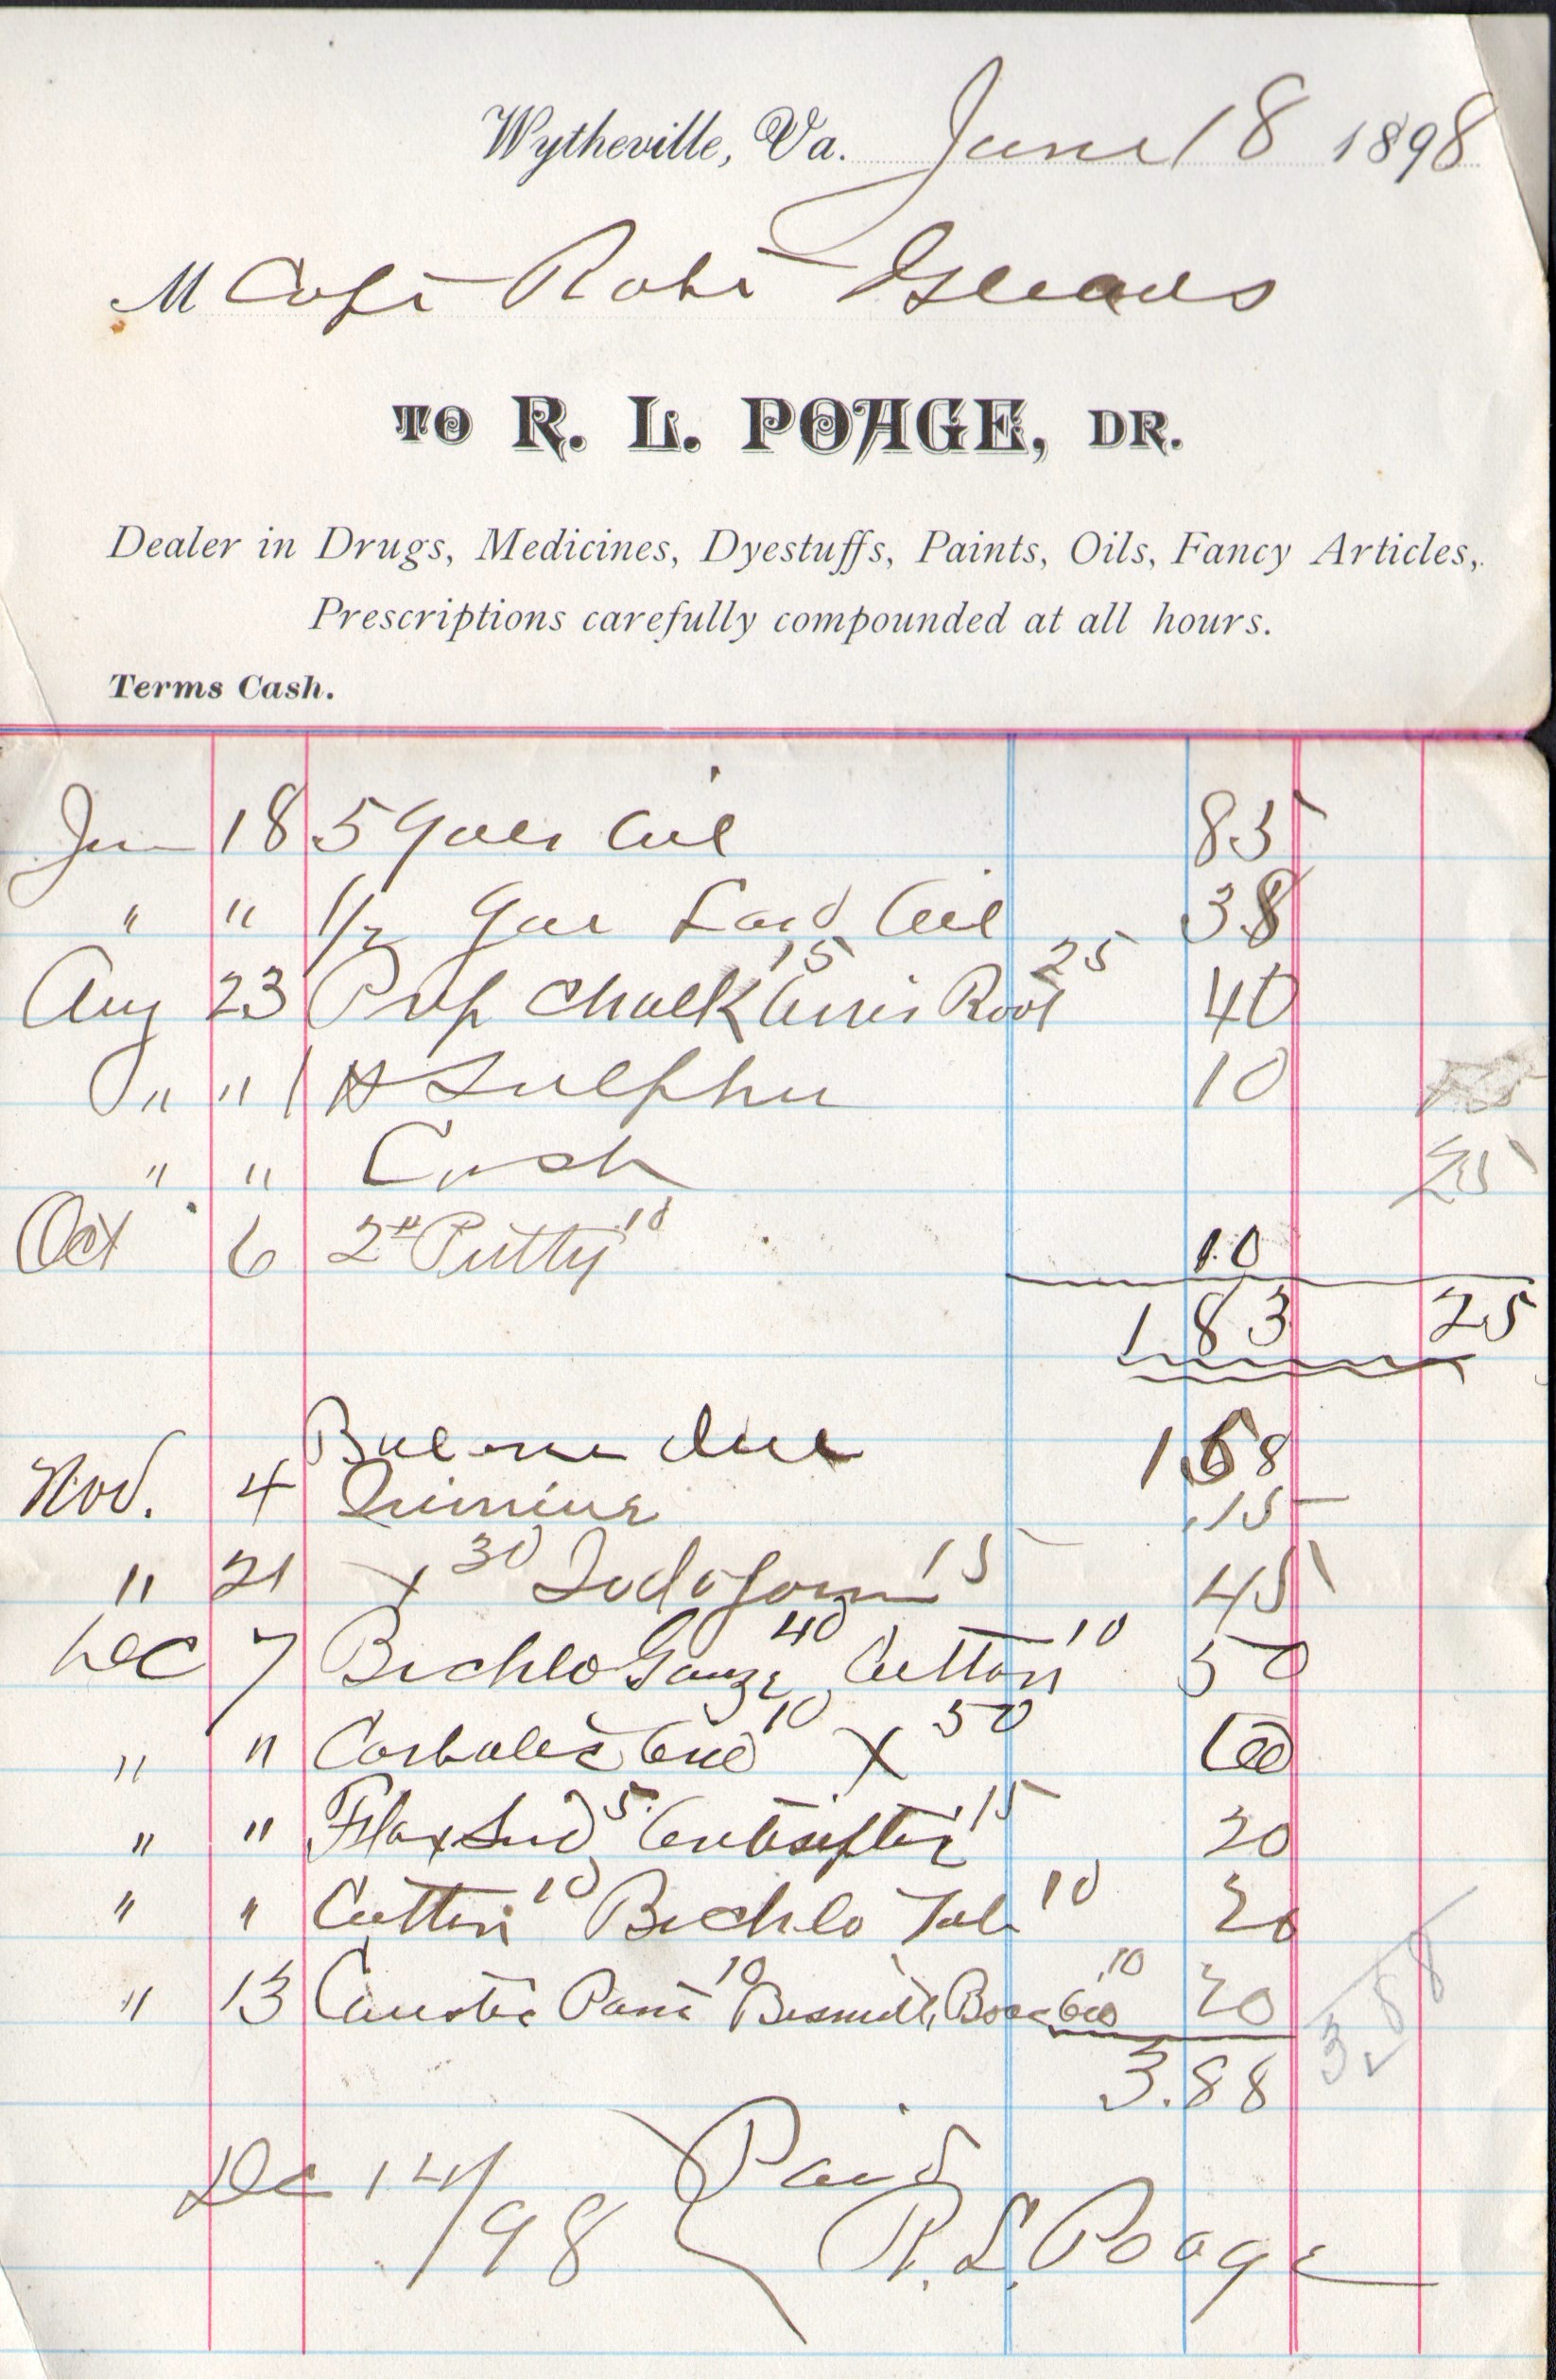 Wytheville, Va. June 18 1898
M Capt Robt
TO R. L. POAGE, DR.
Dealer in Drugs, Medicines, Dyestuffs, Paints, Oils, Fancy Articles,
Prescriptions carefully compounded at all hours.
Terms Cash.
Jun 18 5 Galls Oil 85
" " 1/2 Gal Lard Oil 38
Aug 23 Prep Chalk 15 Orris Root 25 40
" " 1 # Sulphur 10
" " Cash 25
Oct 6 2# Putty 10 10
1 83 25
Balance due 1 58
Nov. 4 Quinine .15
" 21 x 30 Iodoform 15 45
Dec 7 Bichlo Gauze 40 Cotton 10 50
" " Carbolic Acid 10 X 50 60
" " Flaxseed 5 Antiseptic 15 20
" " Cotton 10 Bichlo Tab 10 20
" 13 Caustic 10 Bismuth, Borac 10 20
3.88
3.88
Dec 14/98 Paid
R. L. Poage